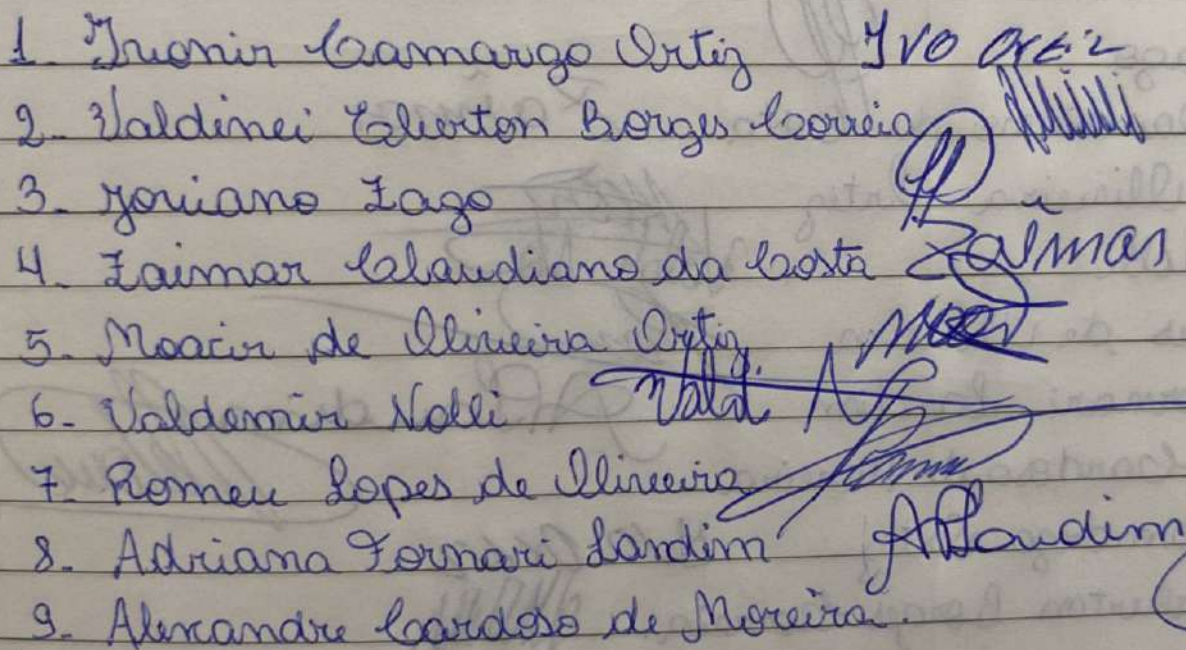 1. Ivonir Camargo Ortiz Ivo Ortiz
2. Valdinei Cleverton Borges Correia
3. Joviano Zago
4. Zaimar Claudiano da Costa Zaimar
5. Moacir de Oliveira Ortiz
6. Valdemir Nolli Vald. N
7. Romeu Lopes de Oliveira
8. Adriana Fornari Landim ALandim
9. Alexandre Cardoso de Moreira.